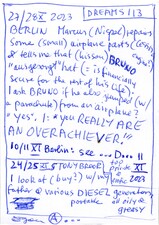 27/28 XI 2023 DREAMS 113
BERLIN Marcus (Nigel) repairs
some (small) airplane parts
& tells me that (his son) BRUNO
"ausgesorgt" hat (= is financially
secure for the rest of his life)
I ask BRUNO if he also jumped (w/
a parachute) from an airplane?
"yes". I: "you REALLY ARE
AN OVERACHIEVER."
10/11 XI Berlin: see ... D.. 11
24/25 XI 5 TONY BROOK
I look at (buy?) w/ my
father & various DIESEL generators
portable all oily &
greasy